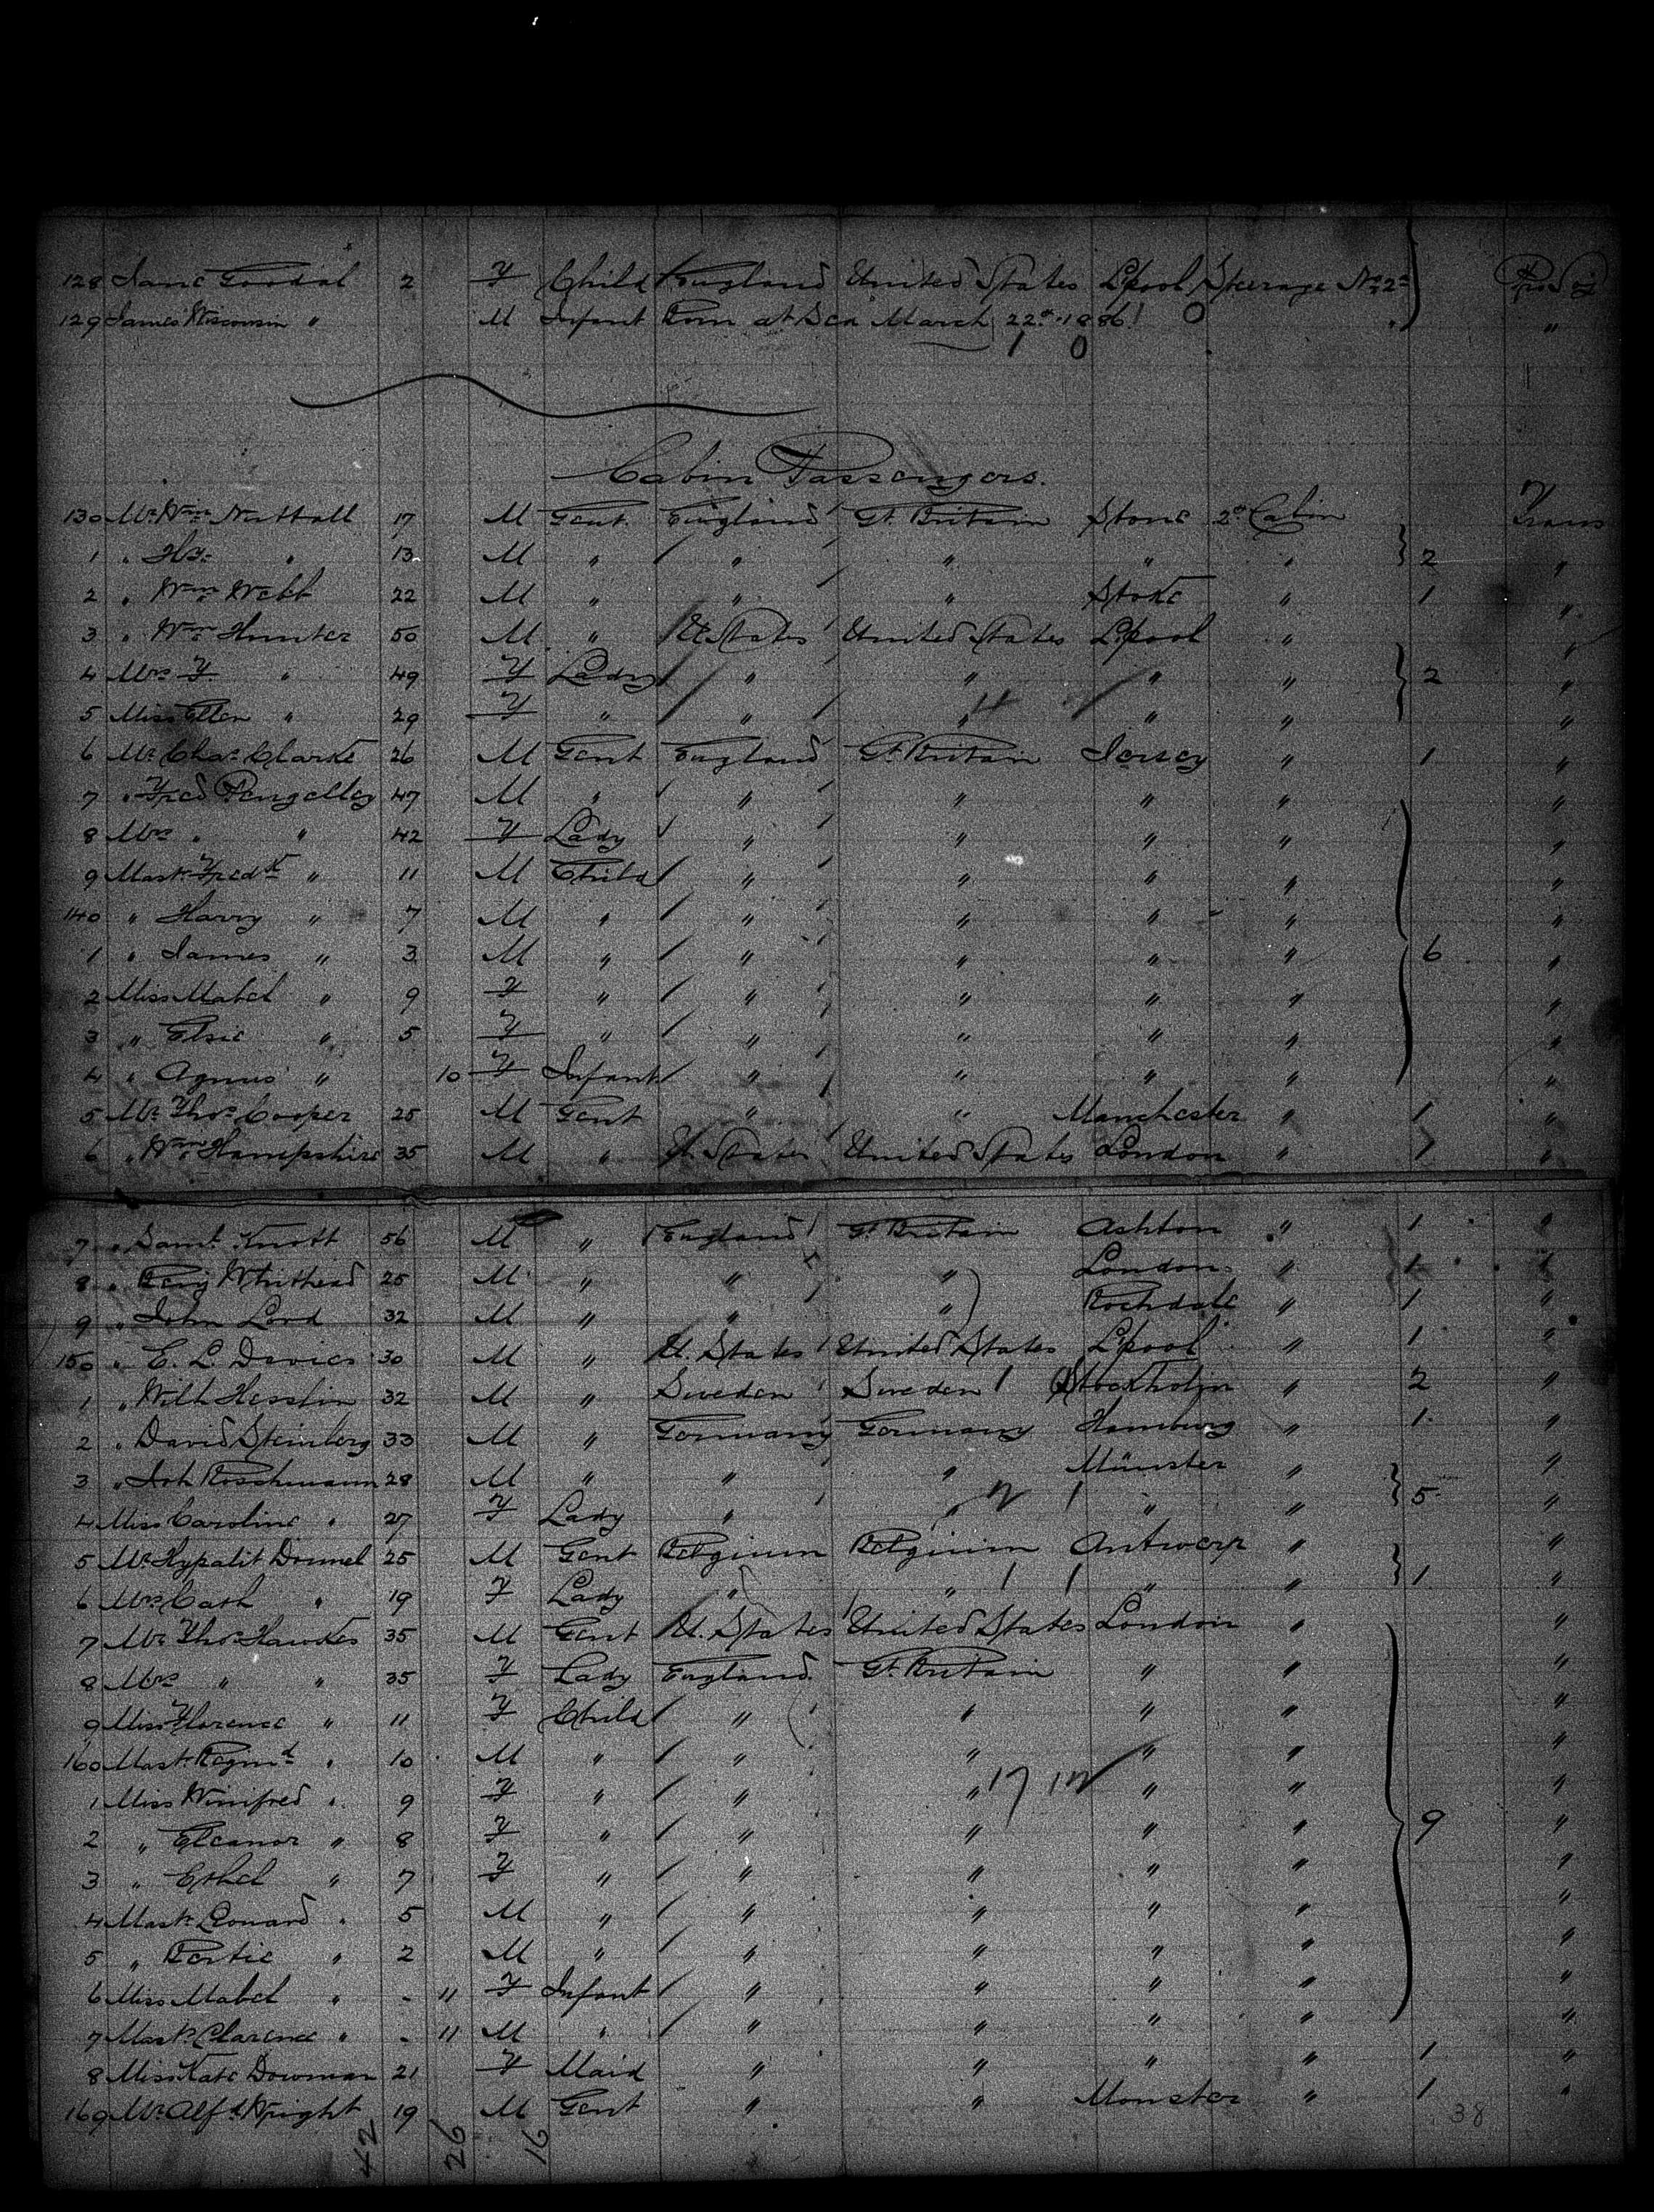 128 Jane Goodal 2 F Child England United States L'pool Steerage No 2 Pro Soj
129 James Wisconsin " M Infant Born at Sea March 22d 1886! 0 " "
1 0
Cabin Passengers.
130 Mr Wm Nuttall 17 M Gent. England Gt. Britain Stone 2d Cabin Trans
1 " Hy. " 13 M " " " " " 2 "
2 " Wm Webb 22 M " " " Stoke " 1 "
3 " Wm Hunter 50 M " U. States United States L'pool " "
4 Mrs F " 49 F Lady " " " " 2 "
5 Miss Ellen " 29 F " " " " " "
6 Mr Chas Clarke 26 M Gent England Gt. Britain Jersey " 1 "
7 " Fred Pengelley 47 M " " " " " "
8 Mrs " " 42 F Lady " " " " "
9 Mastr Fredk " 11 M Child " " " " "
140 " Harry " 7 M " " " " " "
1 " James " 3 M " " " " " 6 "
2 Miss Mabel " 9 F " " " " " "
3 " Elsie " 5 F " " " " " "
4 " Agnus " 10 F Infant " " " " "
5 Mr Thos Cooper 25 M Gent " " Manchester " 1 "
6 " Wm Hampshire 35 M " U. States United States London " 1 "
7 " Saml Knott 56 M " England Gt. Britain Ashton " 1 "
8 " Benj Whithead 25 M " " " London " 1 "
9 " John Lord 32 M " " " Rochdale " 1 "
150 " E. L. Davies 30 M " U. States United States L'pool " 1 "
1 " Wilh Hesslin 32 M " Sweden Sweden Stockholm " 2 "
2 " David Steinberg 33 M " Germany Germany Hamburg " 1 "
3 " Joh Roschmann 28 M " " " Münster " "
4 Miss Caroline " 27 F Lady " " " " 5 "
5 Mr Hypalit Dounel 25 M Gent Belgium Belgium Antwerp " "
6 Mrs Cath " 19 F Lady " " " " 1 "
7 Mr Thos Hawkes 35 M Gent U. States United States London " "
8 Mrs " " 35 F Lady England Gt. Britain " " "
9 Miss Florence " 11 F Child " " " " "
160 Mastr Regind " 10 M " " " " " "
1 Miss Winifred " 9 F " " " 17 " " "
2 " Eleanor " 8 F " " " " " 9 "
3 " Ethel " 7 F " " " " " "
4 Mastr Leonard " 5 M " " " " " "
5 " Bertie " 2 M " " " " " "
6 Miss Mabel " - 11 F Infant " " " " "
7 Mastr Clarence " - 11 M " " " " " "
8 Miss Kate Dowman 21 F Maid " " " " 1 "
169 Mr Alfd Wright 19 M Gent " " Monster " 1 "
38
42 26 16